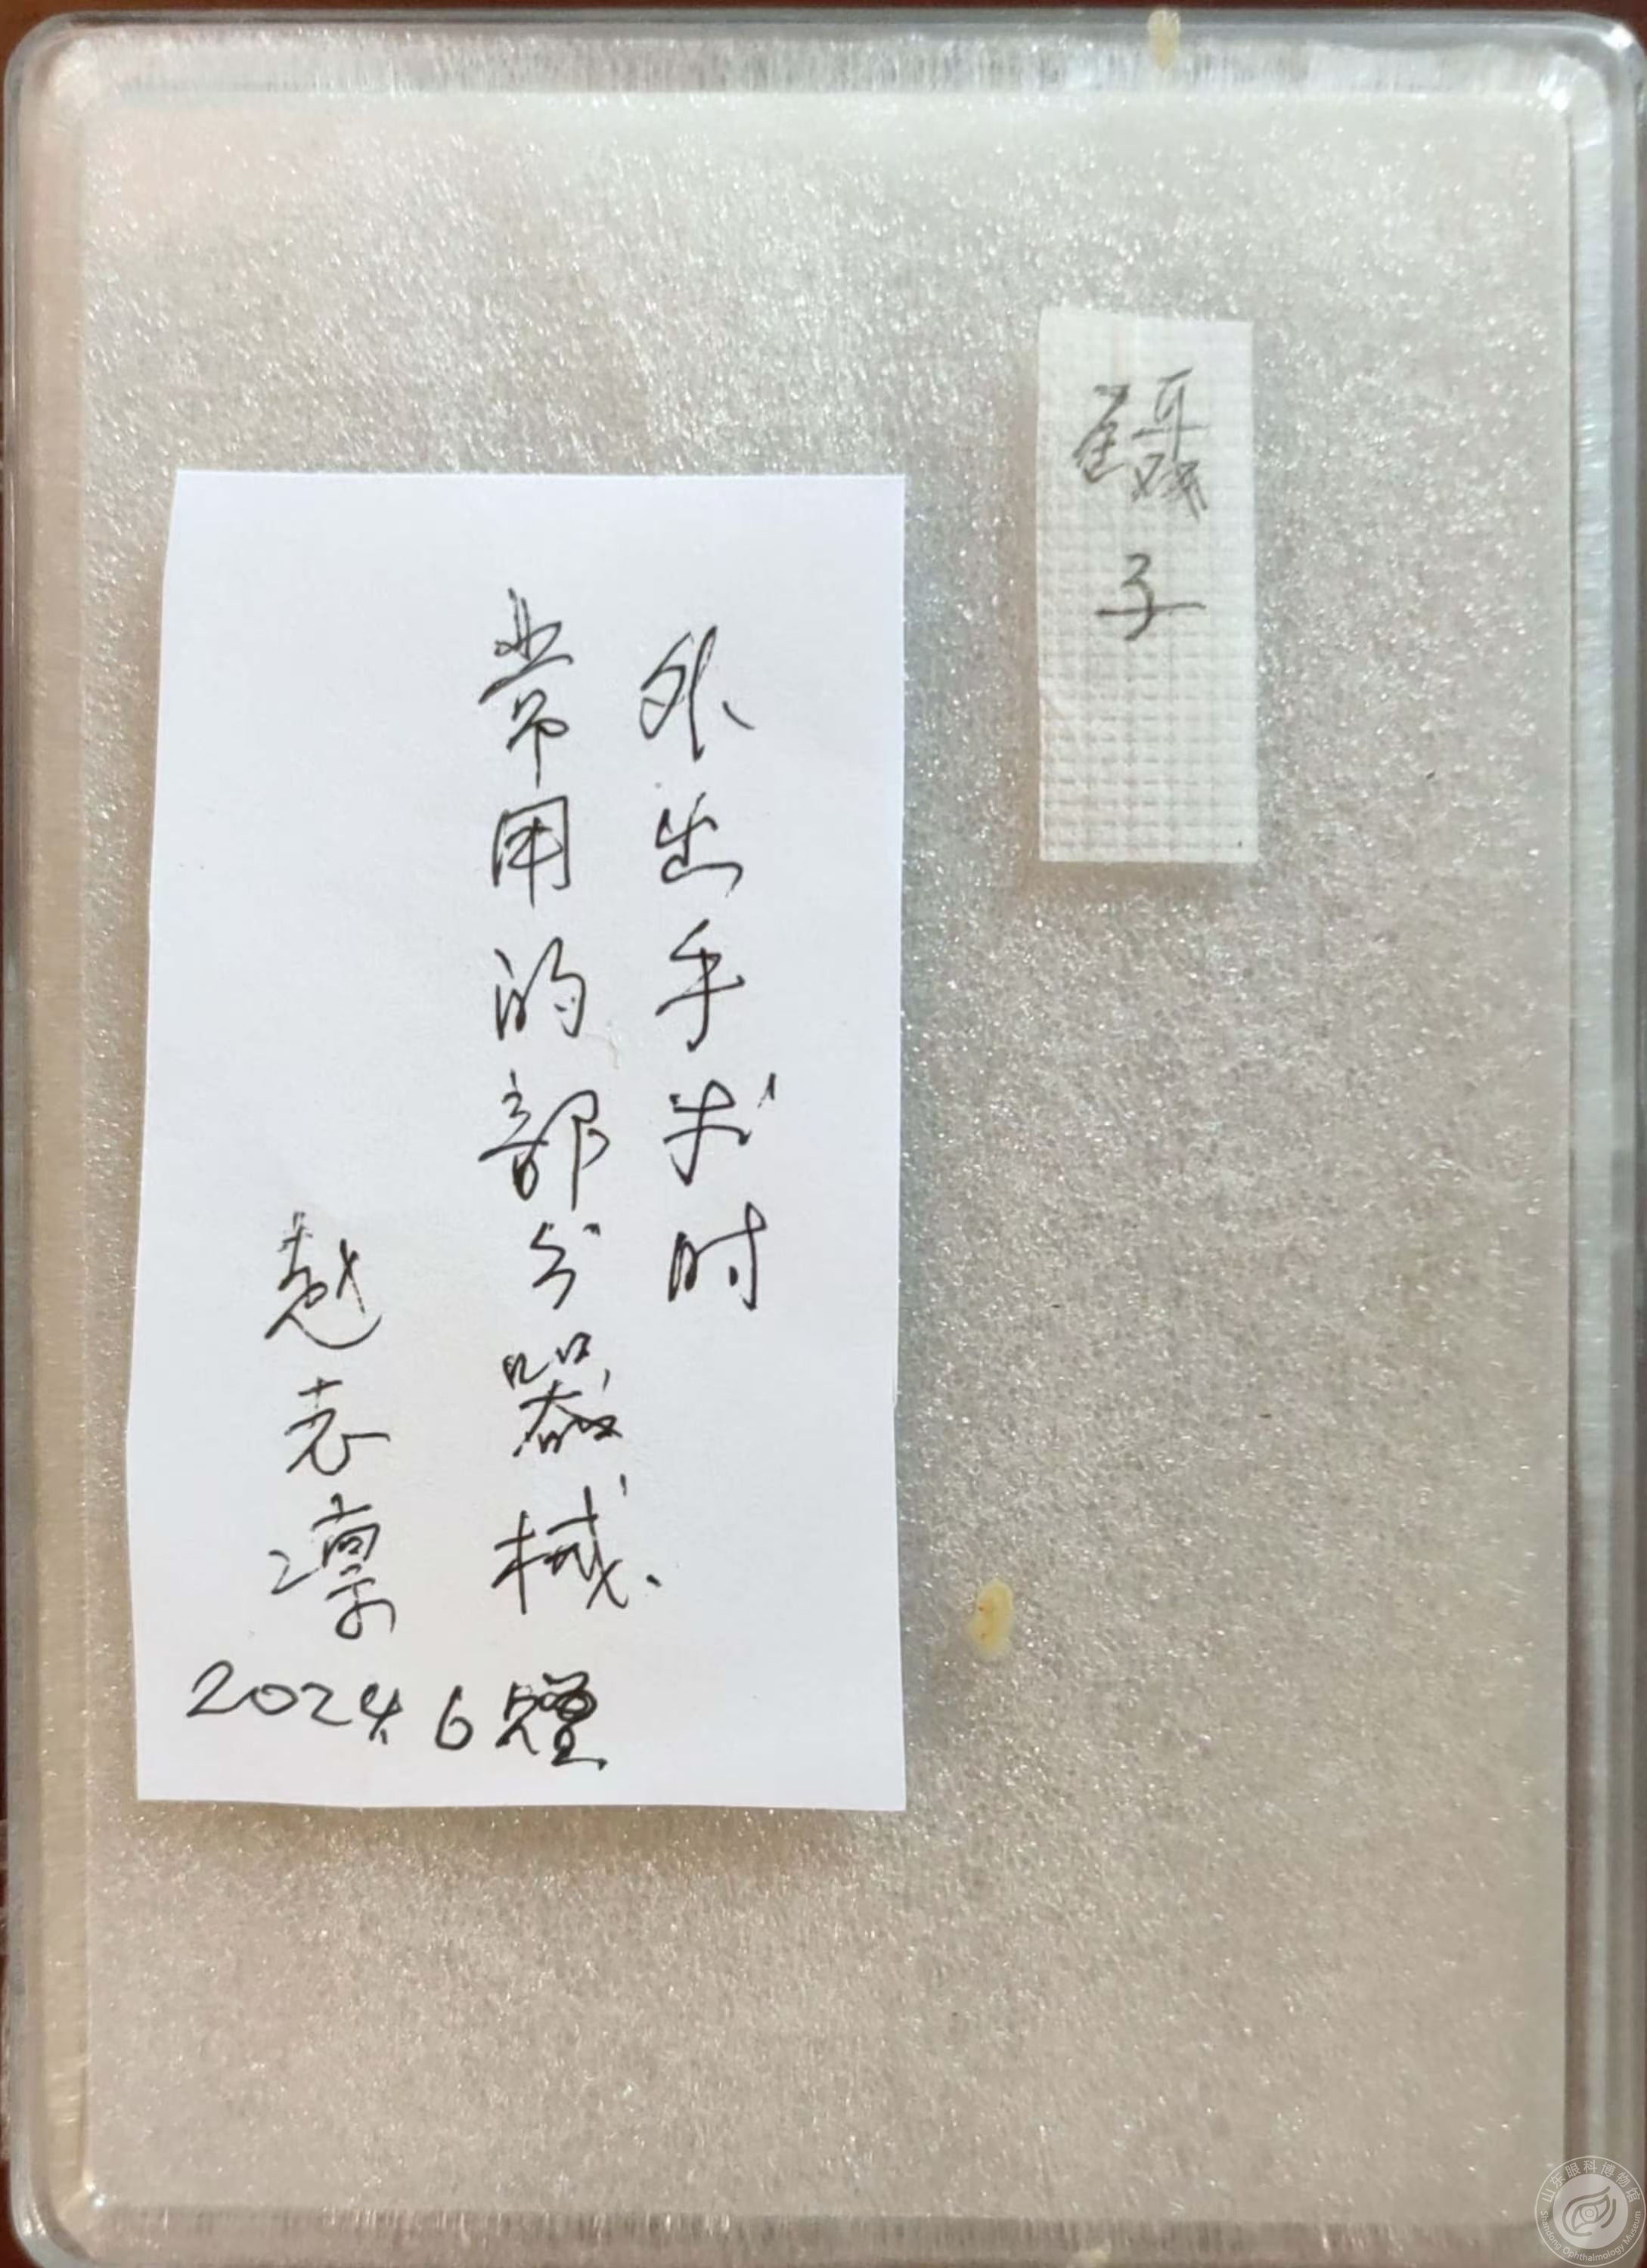 镊
子
外出手术时
常用的部分器械.
赵志凛
2024.6
山东眼科博物馆
Shandong Ophthalmology Museum